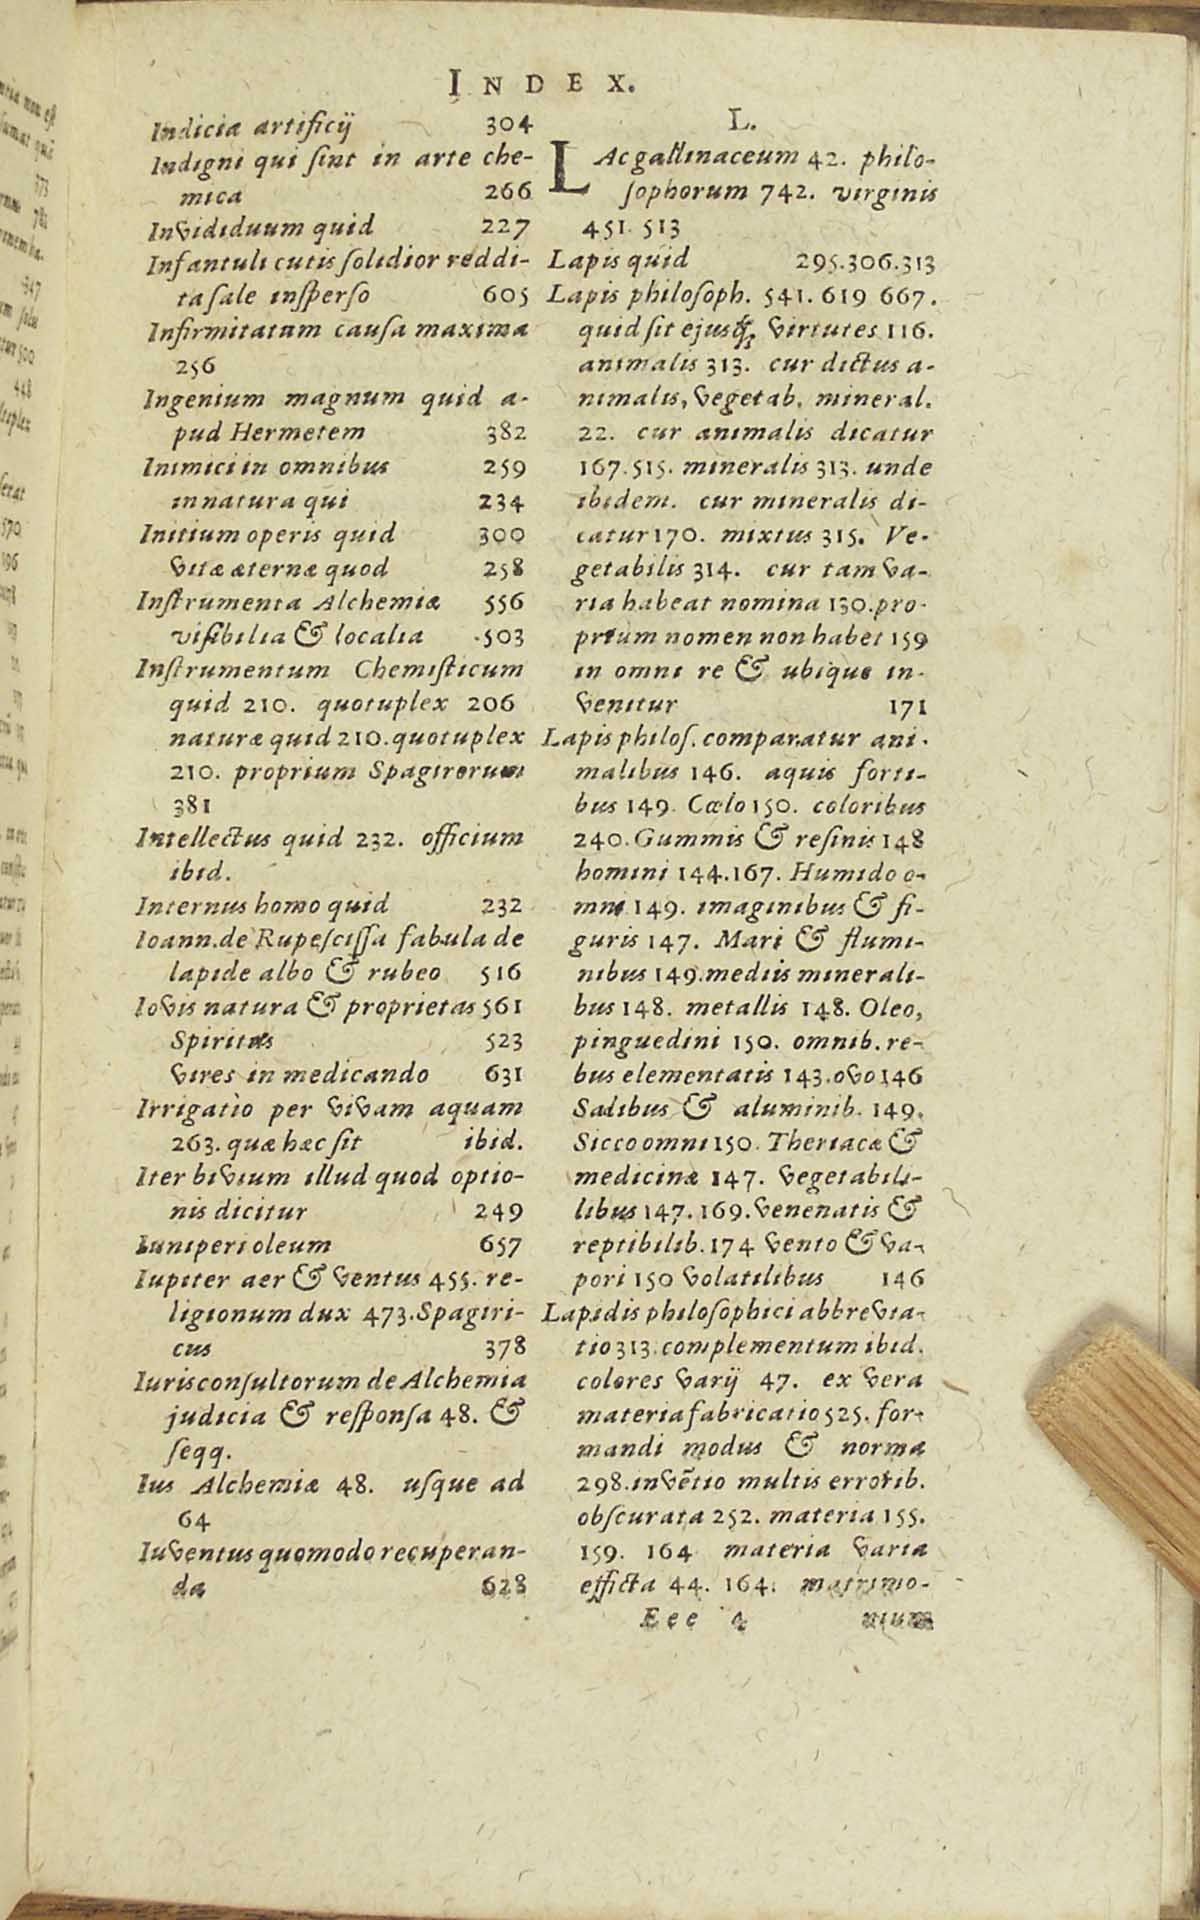 INDEX.
Indicia artificij 304
Indigni qui ſint in arte che-
mica 266
Invididuum quid 227
Infantuli cutis ſolidior reddi-
ta ſale inſperſo 605
Infirmitatum cauſa maxima
256
Ingenium magnum quid a-
pud Hermetem 382
Inimici in omnibus 259
in natura qui 234
Initium operis quid 300
vitæ æternæ quod 258
Inſtrumenta Alchemiæ 556
viſibilia & localia 503
Inſtrumentum Chemiſticum
quid 210. quotuplex 206
naturæ quid 210. quotuplex
210. proprium Spagirorum
381
Intellectus quid 232. officium
ibid.
Internus homo quid 232
Ioann. de Rupeſciſſa fabula de
lapide albo & rubeo 516
Iovis natura & proprietas 561
Spiritus 523
vires in medicando 631
Irrigatio per vivam aquam
263. quæ hæc ſit ibid.
Iter bivium illud quod optio-
nis dicitur 249
Iuniperi oleum 657
Iupiter aer & ventus 455. re-
ligionum dux 473. Spagiri-
cus 378
Iurisconſultorum de Alchemia
judicia & reſponſa 48. &
ſeqq.
Ius Alchemiæ 48. uſque ad
64
Iuventus quomodo recuperan-
da 628
L.
LAc gallinaceum 42. philo-
ſophorum 742. virginis
451. 513
Lapis quid 295.306.313
Lapis philoſoph. 541. 619 667.
quid ſit ejusq́; virtutes 116.
animalis 313. cur dictus a-
nimalis, vegetab. mineral.
22. cur animalis dicatur
167.515. mineralis 313. unde
ibidem. cur mineralis di-
catur 170. mixtus 315. Ve-
getabilis 314. cur tam va-
ria habeat nomina 130. pro-
prium nomen non habet 159
in omni re & ubique in-
venitur 171
Lapis philoſ. comparatur ani-
malibus 146. aquis forti-
bus 149. Cœlo 150. coloribus
240. Gummis & reſinis 148
homini 144.167. Humido o-
mni 149. imaginibus & fi-
guris 147. Mari & flumi-
nibus 149. mediis minerali-
bus 148. metallis 148. Oleo,
pinguedini 150. omnib. re-
bus elementatis 143. ovo 146
Salibus & aluminib. 149.
Sicco omni 150. Theriacæ &
medicinæ 147. vegetabili-
libus 147. 169. venenatis &
reptibilib. 174 vento & va-
pori 150 volatilibus 146
Lapidis philoſophici abbrevia-
tio 313. complementum ibid.
colores varij 47. ex vera
materia fabricatio 525. for-
mandi modus & norma
298. invẽtio multis errorib.
obſcurata 252. materia 155.
159. 164 materia varia
efficta 44. 164. matrimo-
Eee nium